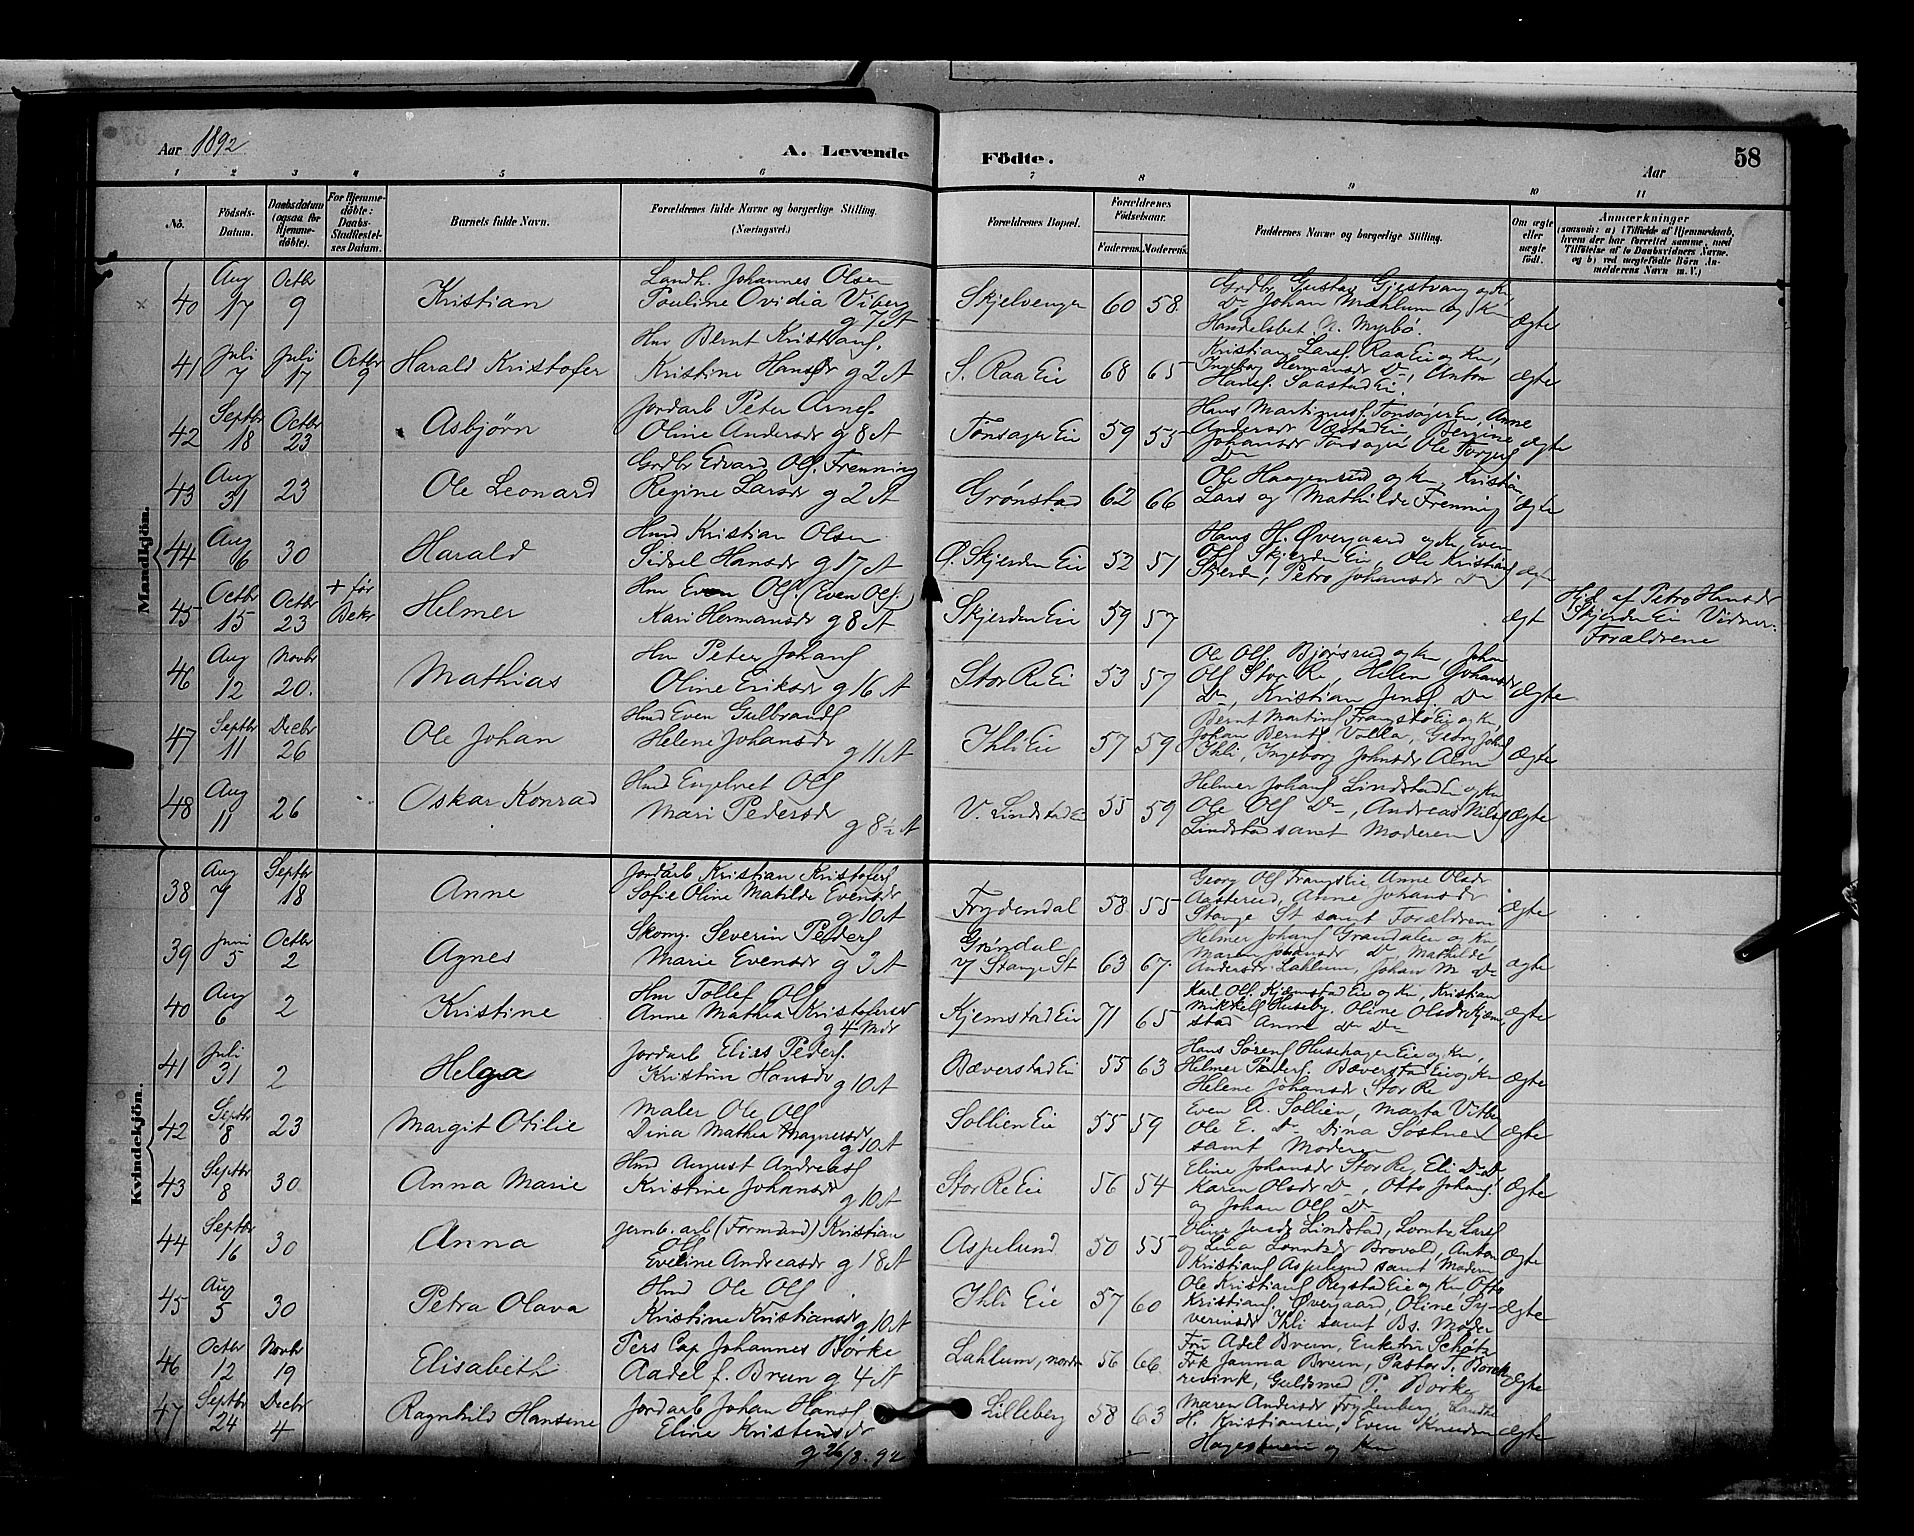 Aar 1892 A. Levende Födte. Aar 58
1 2 3 4 5 6 7 8 9 10 11
No. Födsels-Datum. Daabsdatum (ogsaa for Hjemmedöbte). For Hjemmedöbte: Daabs-Stadfæstelses Datum. Barnets fulde Navn. Forældrenes fulde Navne og borgerlige Stilling. (Næringsvei.) Forældrenes Bopæl. Forældrenes Födselsaar. Faderens. Moderens. Faddernes Navne og borgerlige Stilling. Om ægte eller uægte födt. Anmærkninger (saasom: a) i Tilfælde af Hjemmedaab, hvem der har forrettet samme, med Tilföielse af to Daabsvidners Navne, og b) ved uægtefödte Börn Anmelderens Navn m. V.)
Mandkjön.
40 Aug 17 Octbr 9 Kristian Landh. Johannes Olsen
Pauline Ovidia Viberg g 7 A Skjelvenger 60 58 Grdbr Gustav Gjestvang og Kn
Do Johan Mæhlum og Kn
Handelsbet. A. Myrbö. Ægte
41 Juli 7 Juli 17 Octbr 9 Harald Kristofer Hmr Bernt Kristians.
Kristine Hansdr g 2 A S. Raa Eie 68 65 Kristian Lars. Raa Eie og Kn,
Ingeborg Hermansdr Do, Anton
Hans. Saastad Ei Ægte
42 Septbr 18 Octbr 23 Asbjørn Jordarb Peter Arnes.
Oline Andersdr g 8 A Tønsager Eie 59 55 Hans Martinus. Tonsager Eie, Anne
Andersdr Væstad Eie Bergine
Johansdr Tonsager Ole Torgers
Do Ægte
43 Aug 31 23 Ole Leonard Grdbr Edvard Ols. Frenning
Regine Larsdr g 2 A Grønstad 62 66 Ole Haagensrud og Kn, Kristian
Lars og Mathilde Frenning Ægte
44 Aug 6 30 Harald Hmd Kristian Olsen
Sidsel Hansdr g 17 A Ø. Skjerden Eie 52 51 Hans H. Øvergaard og Kn, Even
Ols Skjerden Eie, Ole Kristians
Skjerden, Petra Johansdr Do Ægte
45 Octbr 15 Octbr 23 + før Bekr Helmer Hmr Even Ols. (Even Ols.)
Kari Hermansdr g 8 A Skjerden Eie 59 57 Ægt Hjd. af Petro Hansdr
Skjerden Eie Vidner:
Forældrene
46 Aug 12 Novbr 20. Mathias Hmr Peter Johans
Oline Eriksdr g 16 A Stor Re Ei 53 57 Ole Ols Bjørsrud og Kn, Johan
Ols Stor Re, Helene Johansdr
Do, Kristian Jens Do Ægte
47 Septbr 11 Decbr 26 Ole Johan Hmd Even Gulbrands
Helene Johansdr g 11 A Ihli Eie 57 59 Bernt Martins Frangstø Eie og Kn
Johan Bernts Volla, Georg Johs
Ihli, Ingeborg Johnsdr Alm Ægte
48 Aug 11 26 Oskar Konrad Hmd Engelbret Ols
Mari Pedersdr g 8½ A V. Lindstad Ei 55 59 Helmer Johans Lindstad Ei og Kn
Ole Ols Do, Andreas Nils
Lindstad samt Moderen Ægte
Kvindekjön.
38 Aug 7 Septbr 18 Anne Jordarb Kristian Kristofers
Sofie Oline Matilde Evensdr g 10 A Frydendal 58 55 Georg Ols Frangst Eie, Anne Olsdr
Aasterud, Anne Johansdr
Stange St samt Forældrene Ægte
39 Juni 5 Octbr 2 Agnes Skom. Severin Peders
Marie Evensdr g 3 A Grøndal
v/ Stange St 63 67 Helmer Johans Grandalen og Kn
Maren Johansdr Do Mathilde
Andersdr Lahlum, Johan M Do Ægte
40 Aug 6 2 Kristine Hmr Tollef Ols
Anne Mathea Kristofersdr g 4 Mdr Kjemstad Eie 71 65 Karl Ols. Kjæmstad Eie og Kn, Kristian
Mikkels Huseby. Oline Olsdr Kjæmstad
Anne Do Do Ægte
41 Juli 31 2 Helga Jordarb Elias Peders.
Kristine Hansdr g 10 A Bæverstad Ei 55 63 Hans Sørens Husehagen Eie og Kn,
Helmer Peders. Bæverstad Eie og Kn
Helene Johansdr Stor Re Ægte
42 Septbr 8 23 Margit Otilie Maler Ole Ols
Dina Mathea Magnusdr g 10 A Sollien Eie 55 59 Even A. Sollien, Marta Vitbe
Ole E. Do Dina Søstuen
samt Moderen Ægte
43 Septbr 8 30 Anna Marie Hmd August Andreas
Kristine Johansdr g 10 A Stor Re Eie 56 54 Eline Johansdr Stor Re, Eli Do Do
Karen Olsdr Do, Otto Johans.
og Johan Ols Do Ægte
44 Septbr 16 30 Anna Jernb. arb (Formand) Kristian
Ols
Eveline Andreasdr g 18 A Aspelund 50 55 Oline Jensdr Lindstad, Lorents Lars
og Lina Lorentsdr Brovold, Anton
Kristians Aspelund samt Moderen Ægte
45 Aug 5 30 Petra Olava Hmd Ole Ols
Kristine Kristiansdr g 10 A Ihli Eie 57 60 Ole Kristians Ragstad Eie og Kn Otto
Kristians. Øvergaard, Oline Syverinsdr
Ihli samt Bs. Moder Ægte
46 Octbr 12 Novbr 19 Elisabeth Pers Cap Johannes Børke
Aadel f. Brun g 4 A Lahlum, nordre 56 66 Fru Adel Brun, Enkefru Schøtz
Frk Janna Brun, Pastor T. Borchrevink,
Guldsmed P. Borke Ægte
47 Septbr 24 Decbr 4 Ragnhild Hansene Jordarb Johan Hans
Eline Kristensdr
g 26/3 92 Lilleberg 58 63 Maren Andersdr Frydenberg Landh
H. Kristiansen, Even Knudsen
Hagestuen og Kn Ægte